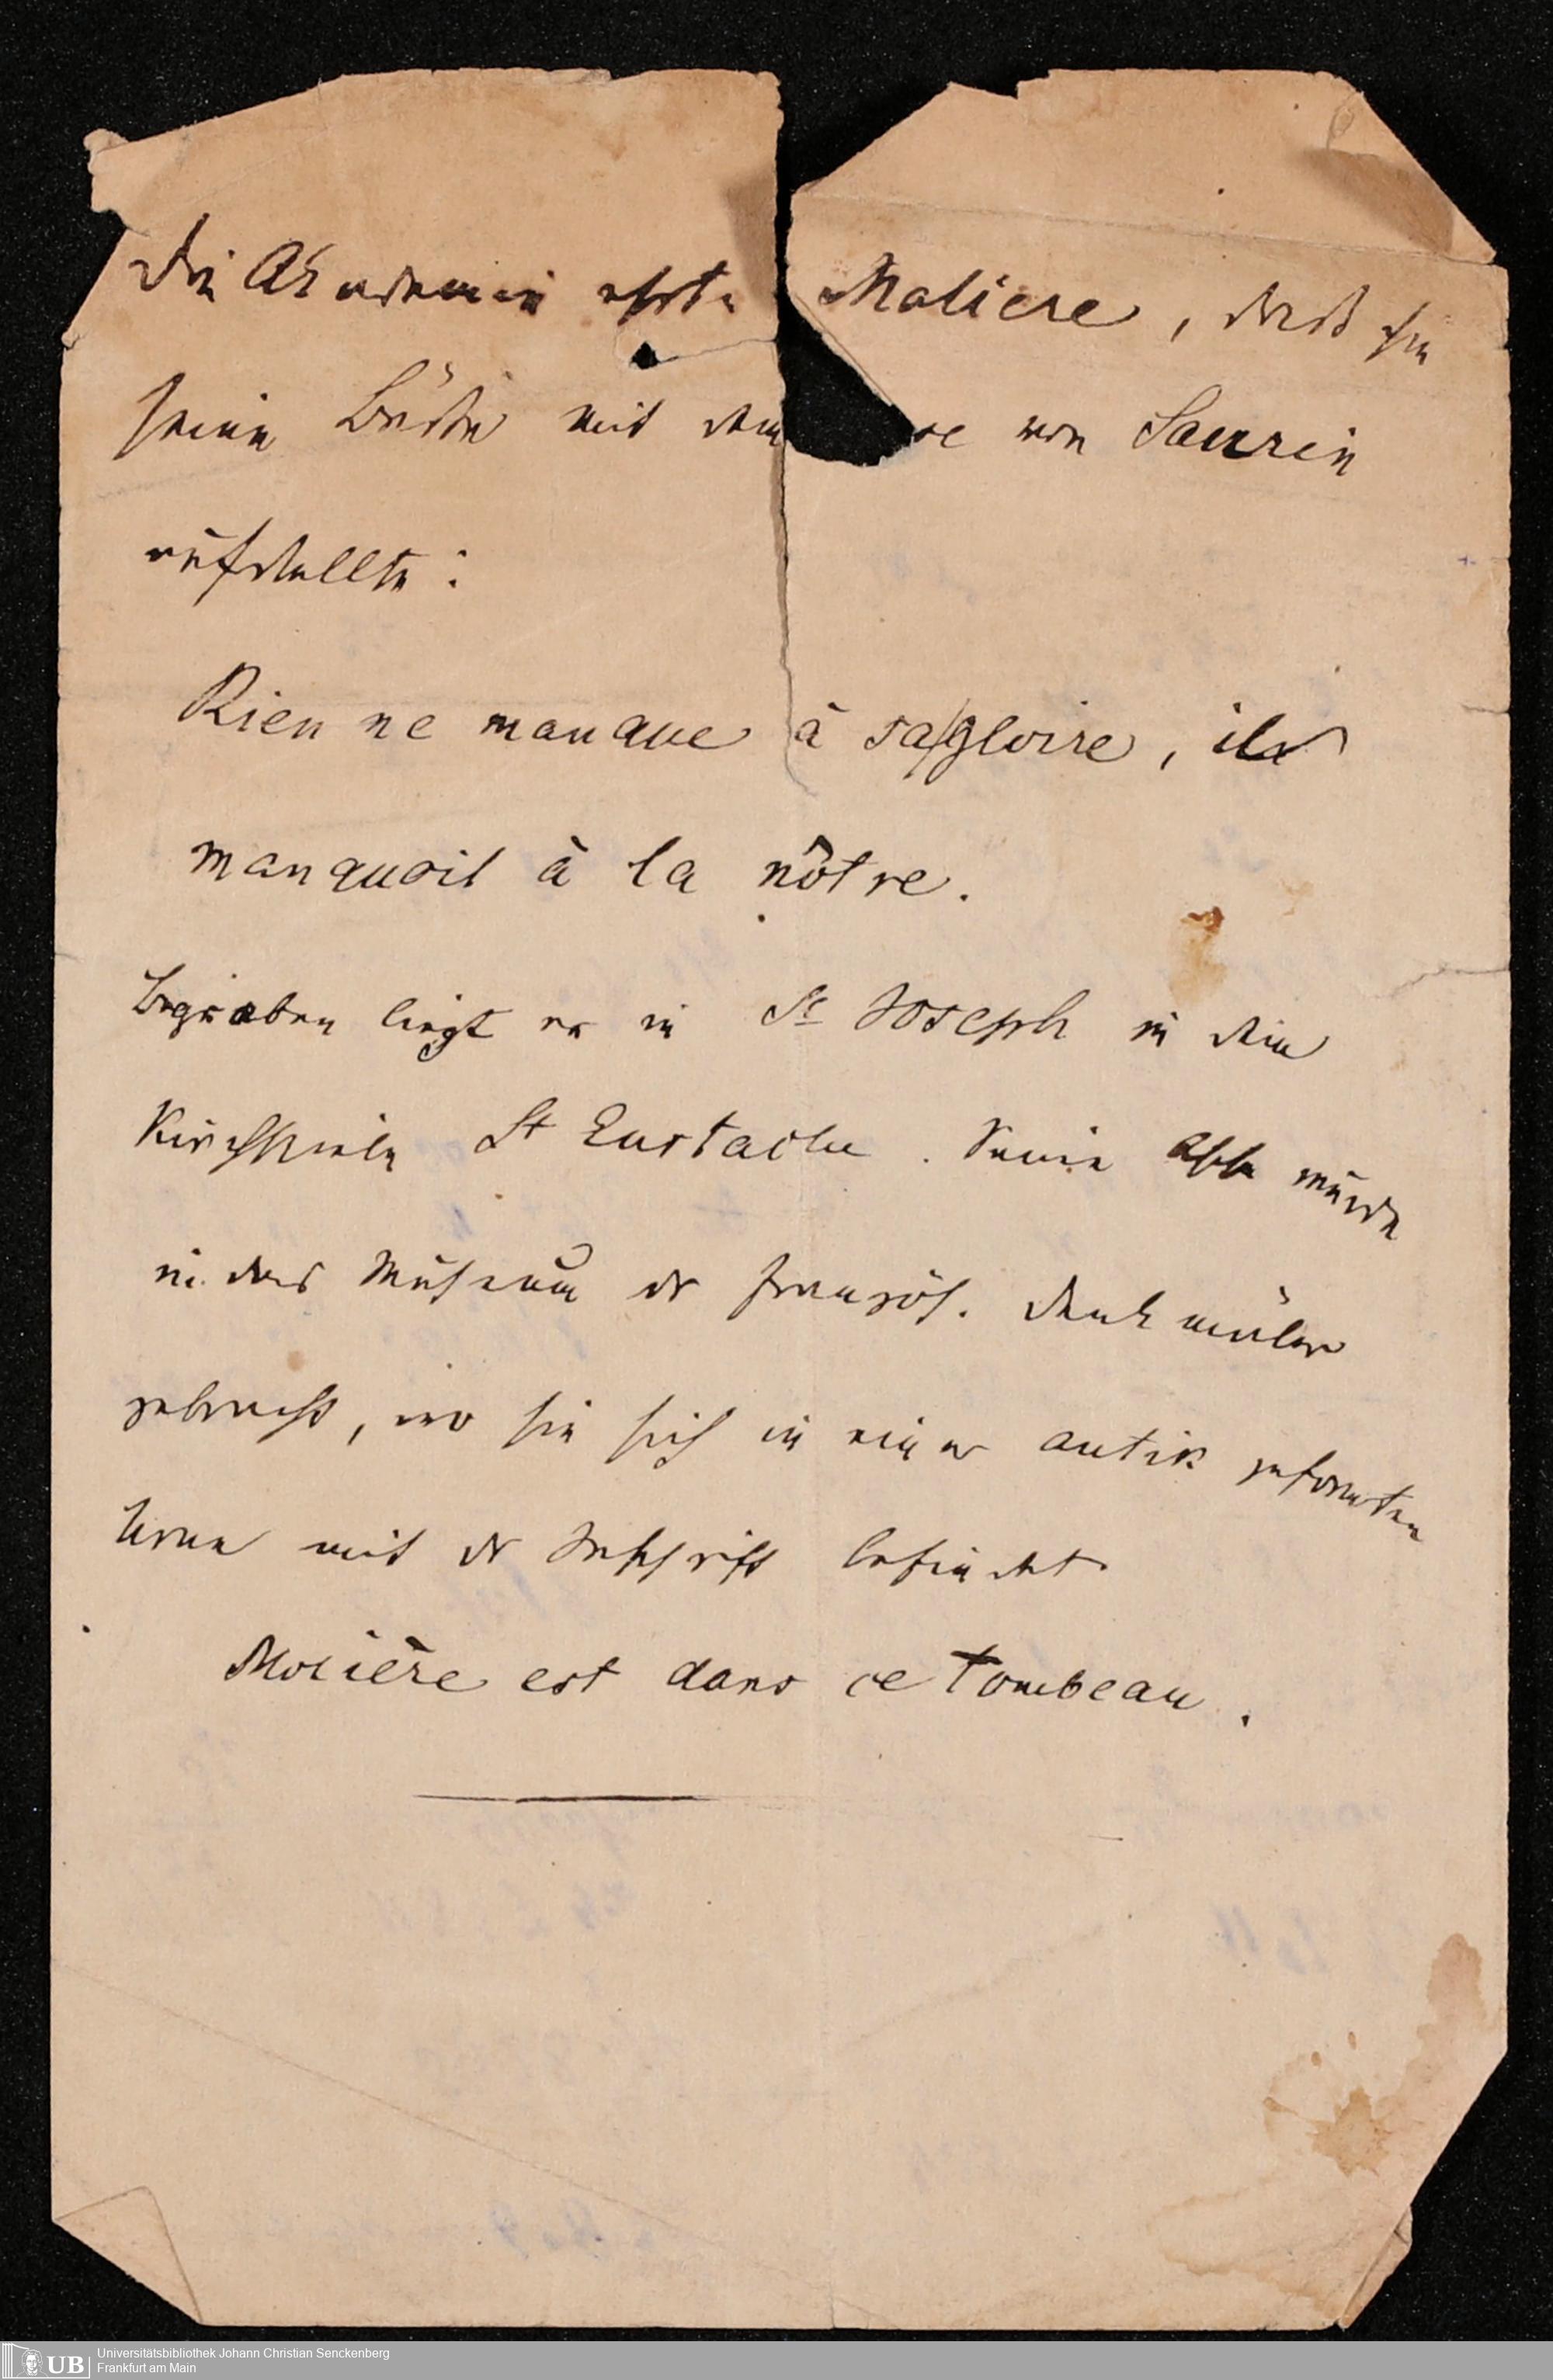 Die Akademie ehrte Moliere, daß sie
seine Büste mit dem re von Saurin
aufstellte:
Rien ne manque à sa gloire, il
manquoit à la nôtre.
Begraben liegt er in St Joseph in dem
Kirchspiele St Eustache. Seine Asche wurde
in das Museum der französ. Denkmäler
gebracht, wo sie sich in einer antik geformten
Urne mit der Inschrift befindet
Molière est dans ce Tombeau.
UB Universitätsbibliothek Johann Christian Senckenberg
Frankfurt am Main